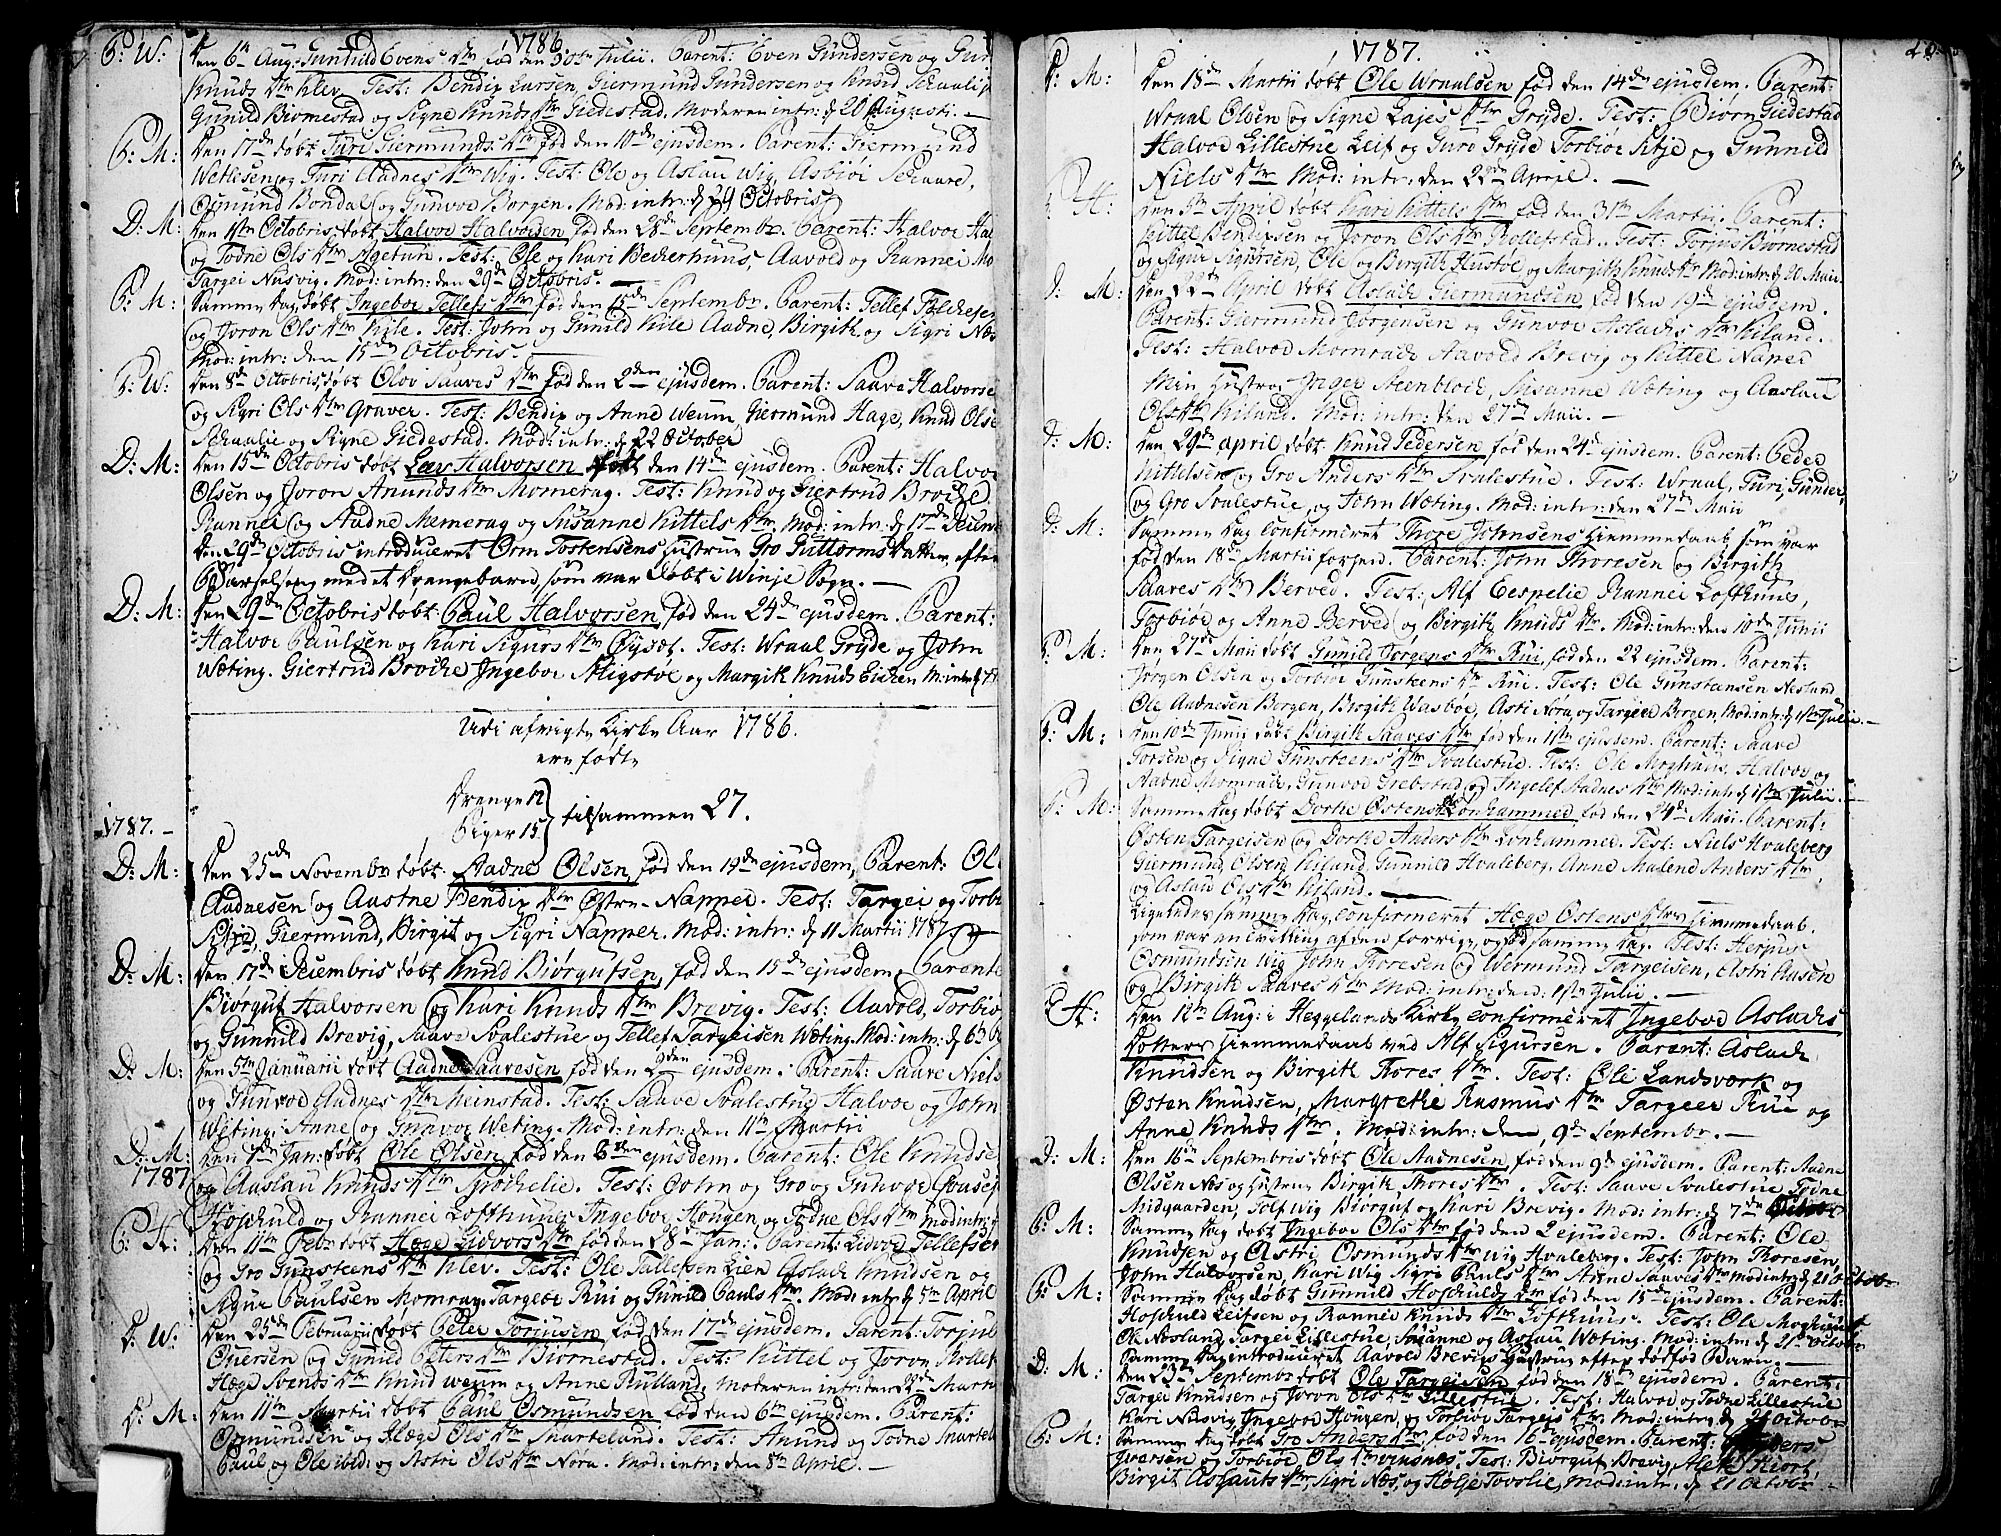 1786
P: W: Den 6te Aug: Gunhild Evens Dtr fød den 30te Julii. Parent: Even Gundersen og
Knuds Dtr Klev. Test: Bendix Larsen, Giermund Gundersen og Knud
Gunild Biørnestad og Signe Knuds Dtr Giedestad. Moderen intr: d 20 Augusti. —
P: M: Den 17de døbt Turi Giermunds Dtr fød den 10de ejusdem. Parent: Giermund
Wetlesen og Turi Aadnes Dtr Wig. Test: Ole og Aslau Wig, Asbiør
Osmund Bondal og Gunvor Borgen. Mod: intr: d 29 Octobris
D: M: Den 1ste Octobris døbt Halvor Halvorsen fød den 28de Septembr. Parent: Halvor
og Todne Ols Dtr. Test: Ole og Kari Beckerhuus, Aavold og Rannei
Targei Nusvig. Mod: intr: den 29de Octobris.
P: M: Samme Dag døbt Ingebor Tellefs Dtr fød den 15de Septembr. Parent: Tellef
og Joron Ols Dtr Kile. Test: John og Gunild Kile Aadne, Birgith og Sigri
Mod: intr: den 15de Octobris. —
P: W: Den 8de Octobris, døbt Olov Saaves Dtr fød den 2den ejusdem. Parent: Saave
og Sigri Ols Dtr Graver. Test: Bendix og Anne Weum, Giermund Hage, Knud
og Signe Giedestad. Mod: intr: d 22 October
D: M: Den 15de Octobris døbt Lav Halvorsen født den 14de ejusdem. Parent: Halvor
Olsen og Joron Anunds Dtr Momrag. Test: Knud og Giertrud Brocke
Rannei og Aadne Memerag og Susanne Kittels Dtr. Mod: intr: d 17de
Den 29de Octobris introduceret Orm Tostensens Hustrue Gro Guttorms Datter, efter
Barselseng med et Drengebarn, som var døbt i Winje Sogn. —
D: M: Den 29de Octobris døbt: Paul Halvorsen fød den 24de ejusdem. Parent:
Halvor Paulsen og Kari Sigurs Dtr. Test: Wraal Gryde og John
Wæting. Giertrud Brocke Ingebor og Margith Knuds
Udi afvigte Kirke Aar 1786.
ere fødte
Drenge 12
Piger 15 } tilsammen 27.
1787. —
D: M: Den 25de Novembr døbt: Aadne Olsen, fød den 19de ejusdem, Parent:
Aadnesen og Aastne Bendix Dtr Østre Napper. Test: Targei og
Giermund, Birgit og Sigri Napper. Mod: intr: d 11 Martii 1787
D: M: Den 17de Decembris døbt Knud Biørgufsen, fød den 15de ejusdem. Parent
Biørguf Halvorsen og Kari Knuds Dtr Brevig. Test: Aavold, Torbiør
og Gunnild Brevig, Saave Svalestue og Tellef Targeisen Wæting. Mod: intr:
D: M: Den 5te Januarii døbt Aadne Saavesen fød den 2den ejusdem. Parent: Saave
og Gunvor Aadnes Dtr. Test: Saave Svalestue Halvor og John
Wæting. Anne og Gunvor Weting. Mod: intr: den 11te Martii
D: M: Den 7de Jan: døbt Ole Olsen fød den ejusdem. Parent: Ole
1787
og Aaslau Knuds Dtr. Test: John og Gro og Gunvor
Hoskuld og Rannei Lofthuus Ingebor Hougen, og Todne Ols Dtr mod intr:
P: H: Den 11te Febr: døbt Hæge Lidvors Dtr fød den 8de Jan: Parent: Lidvor
og Gro Gunsteens Dtr Klev. Test: Ole Tallefsen Lien Aslack Knudsen og
Sigur Paulsen Momrag. Targebe Rui og Gunild Pauls Dtr. Mod: intr: d 5te April
D: W: Den 25de Februarii døbt Peter Torjusen fød den 17de ejusdem. Parent: Torjus
og Gunild Peters Dtr Biørnestad. Test: Kittel og Joron
Hæge Svends Dtr Knud Weum og Anne Rulland, Moderen intr: den
D: M: Den 11te Martii døbt Paul Osmundsen fød den 6te ejusdem. Parent:
Osmundsen og Hæge Ols Dtr Snarteland. Test: Anund og Todne
Paul og Ole ibid: og Astri Ols Dtr Nøra. Mod: intr: den 8de April. —
1787.
D: M: Den 18de Martii døbt Ole Wraalsen fød den 14de ejusdem. Parent:
Wraal Olsen og Signe Lajes Dtr Gryde. Test: Biørn Giedestad
Halvor Lillestue Leif og Guro Gryde Torbiør og Gunnild
Niels Dtr Mod: intr: den 22de April. —
P: H: Den 5te April døbt Kari Kittels Dtr fød den 31te Martii. Parent:
Kittel Bendixsen og Joron Ols Dtr Rollefstad. Test: Torjus Biørnestad
og Sigur Sigursen, Ole og Birgith og Margith Knuds Dtr Mod: intr: d 20 Maii
D: M: Den 22de April døbt Aslack Giermundsen fød den 19de ejusdem.
Parent: Giermund Jørgensen og Gunvor Aslacks Dtr Kiland.
Test: Halvor Momrack Aavold Brevig og Kittel Naper
Min Hustroe Inger Steenblock, Susanne Wæting og Aaslau
Ols Dtr Kiland. Mod: intr: den 27de Maii. —
D: M: Den 29de April døbt Knud Pedersen fød den 24de ejusdem. Parent: Peder
Kittelsen og Gro Anders Dtr Svalestue. Test: Wraal, Turi, Gunder,
og Gro Svalestue, og John Wæting. Mod: intr: den 27de Maii
D: M: Samme Dag confirmeret Thore Johnsens Hiemmedaab som var
fød den 18de Martii forhen. Parent: John Thoresen og Birgith
Saaves Dtr Berved. Test: Alf Eespelie Rannei Lofthuus,
Torbiør og Anne Berved og Birgith Knuds Dtr. Mod: intr: den 10de Junii
P: M: Den 27de Maii døbt Gunild Jørgens Dtr Rui, fød den 22 ejusdem. Parent:
Jørgen Olsen og Torbiør Gunsteens Dtr Rui. Test: Ole Gunstensen Nesland
Ole Aadnesen Borgen, Birgith Wasbøe, Asti Nøra, og Targier Borgen, Mod: intr: d 1ste Julii. —
P: M: Den 10de Junii døbt Birgith Saaves Dtr fød den 1ste ejusdem. Parent: Saave
Torsen og Signe Gunsteens Dtr Svalestue. Test: Ole Moghuus, Halvor og
Aadne Momrack, Gunvor Grebstad og Ingelef Aadnes Dtr Mod: intr: d 1ste Julii. —
P: M: Samme Dag døbt Dorthe Østens Dtr Lonhammer, fød den 24de Maii. Parent:
Østen Targeisen og Dorthe Anders Dtr Lonhammer. Test: Niels Hvaleberg
Giermund Olsen Kiland, Gunnild Hvaleberg, Anne Malene Anders Dtr,
og Aslau Ols Dtr Kiland. —
Ligeledes samme Dag confirmeret Hæge Østens Dtrs Hiemmedaab.
som var en Tvilling af den forrige, og fød samme Dag. Test: Herjus
Osmundsen Wig John Thoresen og Wermund Targeisen, Astri Aasen
og Birgith Saaves Dtr Mod: intr: den: 1ste Julii. —
P: H: Den 12te Aug: i Heggelands Kirke confirmeret Ingebor Aslacks
Dotters Hiemmedaab ved Alf Sigursen. Parent: Aslack
Knudsen og Birgith Thores Dtr. Test: Ole Landsvork og
Østen Knudsen, Margrethe Rasmus Dtr Targeer Rui og
Anne Knuds Dtr. Mod: intr: den, 9de Septembr. —
D: M: Den 16de Septembris døbt Ole Aadnesen, fød den 9de ejusdem. Parent: Aadne
Olsen Nes og Hustrue Birgith Thores Dtr. Test: Saave Svalestue Todne
Midgaarden, Tolf Wig Biørguf og Kari Brevig. Mod: intr: d 7de Octobr
P: M: Samme Dag døbt Ingebor Ols Dtr fød den 2 ejusdem. Parent: Ole
Knudsen og Astri Osmunds Dtr Wig Hvaleberg. Test: John Thoresen,
John Halvorsen, Kari Wig Sigri Pauls Dtr Anne Saaves Dtr mod intr: d 21 Octob
P: M: Samme Dag døbt Gunnild Hoskulds Dtr fød den 15de ejusdem. Parent:
Hoskuld Leifsen og Rannei Knuds Dtr Lofthuus. Test: Ole Moghuus
Ole Nesland, Targei Lillestue, Susanne og Aslau Wæting. Mod: intr: d 21de October
Samme Dag introduceret Aavold Brevigs Hustrue efter dødfød Barn. —
D: M: Den 23de Septembr døbt Ole Targeisen fød den 18de ejusdem. Parent:
Targei Knudsen og Joron Ols Dtr Lillestue. Test: Halvor og Todne Lillestue
Kari Nesvig Ingebor Hougen, og Torbiør Targeis Dtr. Mod: intr: d 21 Octobr
P: M: Samme Dag døbt Gro Anders Dtr, fød den 16de ejusdem. Parent: Anders
Iversen og Torbiør Ols Dtr. Test: Biørguf Brevig,
Birgit Aslaks Dtr, Sigri Næs, og Helje Tovslie, Mod: intr: d 21 Octobr —